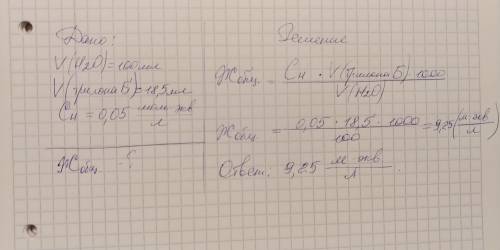 Дано:
V(H2O)=100мл
V(трилонаБ)=18,5мл
Cн=0,05 моль экв
л
Жобщ. -?
Решение
Жобщ. = Cн · V(трилонаБ) 1000
V(H2O)
Жобщ = 0,05 · 18,5 · 1000 = 9,25 (м-экв
100 л)
Ответ: 9,25 м экв
л .